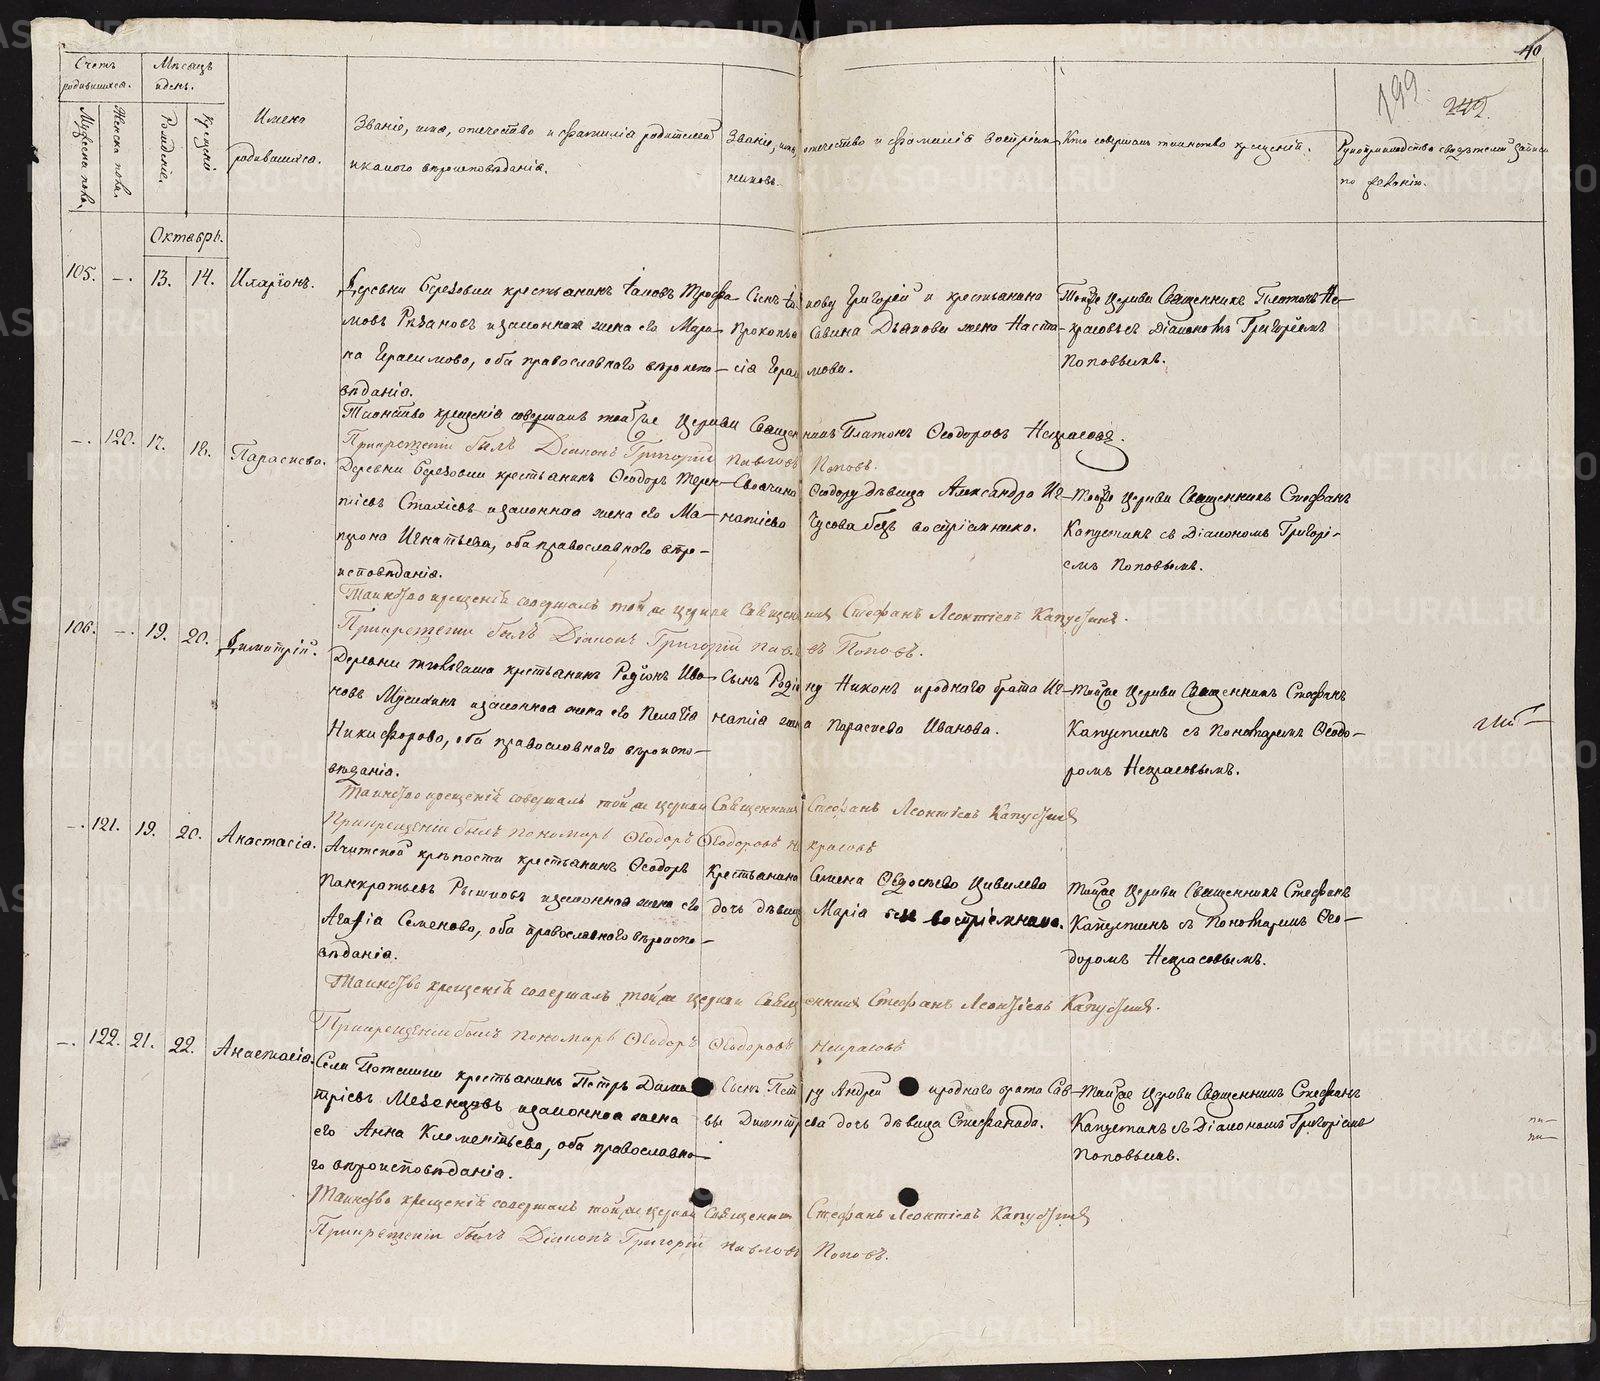 40
199.
242.
Счетъ родившихся.
Мужеска пола.
Женска пола.
Мѣсяцъ и день.
Рожденіе.
Крещеніе
Имена родившихся.
Званіе, имя, отечество и фамилія родителей
и какого вѣроисповѣданія.
Званіе, имя, отечество и фамилія воспріем-
никовъ.
Кто совершалъ таинство крещенія.
Рукоприкладство свидѣтелей записи
по желанію.
Октябрь.
105. —. 13. 14. Иларіонъ.
Деревни Березовки крестьянинъ Іаковъ Трофи-
мовъ Рязановъ и законная жена его Мари-
на Герасимова, оба православнаго вѣроиспо-
вѣданія.
Прокопь
Григорій и крестьянина
Савина Дьякова жена Наста-
сія Гера мова.
Тойже Церкви Священникъ Платонъ Не-
красовъ съ Діакономъ Григоріемъ
Поповымъ.
Таинство крещенія совершалъ тойже Церкви Священникъ Платонъ Ѳеодоровъ Некрасовъ.
При крещеніи былъ Діаконъ Григорій Павловъ Поповъ.
—. 120. 17. 18. Параскева.
Деревни Березовки крестьянинъ Ѳеодоръ Терен-
тіевъ и законная жена его Ма-
трона Игнатьева, оба православнаго вѣро-
исповѣданія.
Своячина Ѳеодору дѣвица Александра Иг-
натіева Чусова безъ воспріемника.
Тойже Церкви Священникъ Стефанъ
Капустинъ съ Діакономъ Григорі-
емъ Поповымъ.
Таинство крещенія совершалъ той же церкви Священникъ Стефанъ Леонтіевъ Капустинъ.
При крещеніи былъ Діаконъ Григорій Павловъ Поповъ.
106. —. 19. 20. Димитрій.
Деревни крестьянинъ Родіонъ Ива-
новъ и законная жена его Пелагія
Никифорова, оба православнаго вѣроиспо-
вѣданія.
Сынъ Родіону Никонъ и роднаго брата Иг-
натія жена Параскева Иванова.
Тойже Церкви Священникъ Стефанъ
Капустинъ съ Пономаремъ Ѳеодо-
ромъ Некрасовымъ.
Таинство крещенія совершалъ той же церкви Священникъ Стефанъ Леонтіевъ Капустинъ
При крещеніи былъ Пономарь Ѳеодоръ Ѳеодоровъ Некрасовъ
—. 121. 19. 20. Анастасія.
Ачитской крѣпости крестьянинъ Ѳеодоръ
Панкратьевъ и законная жена его
Агафія Семенова, оба православнаго вѣроиспо-
вѣданія.
Крестьянина Семена Ѳедосѣева Цивилева
дочь дѣвица Марія безъ воспріемника.
Тойже Церкви Священникъ Стефанъ
Капустинъ съ Пономаремъ Ѳео-
доромъ Некрасовымъ.
Таинство крещенія совершалъ той же церкви Священникъ Стефанъ Леонтіевъ Капустинъ.
При крещеніи былъ Пономарь Ѳеодоръ Ѳеодоровъ Некрасовъ
—. 122. 21. 22. Анастасія.
Села крестьянинъ Петръ Дими-
тріевъ Мезенцовъ и законная жена
его Анна Клементьева, оба православна-
го вѣроисповѣданія.
Сынъ Петру Андрей и роднаго брата Сав-
вы Димитріева дочь дѣвица Стефанида.
Тойже Церкви Священникъ Стефанъ
Капустинъ съ Діакономъ Григоріемъ
Поповымъ.
Таинство крещенія совершалъ той же церкви Священникъ Стефанъ Леонтіевъ Капустинъ
При крещеніи былъ Діаконъ Григорій Павловъ Поповъ.
METRIKI.GASO-URAL.RU